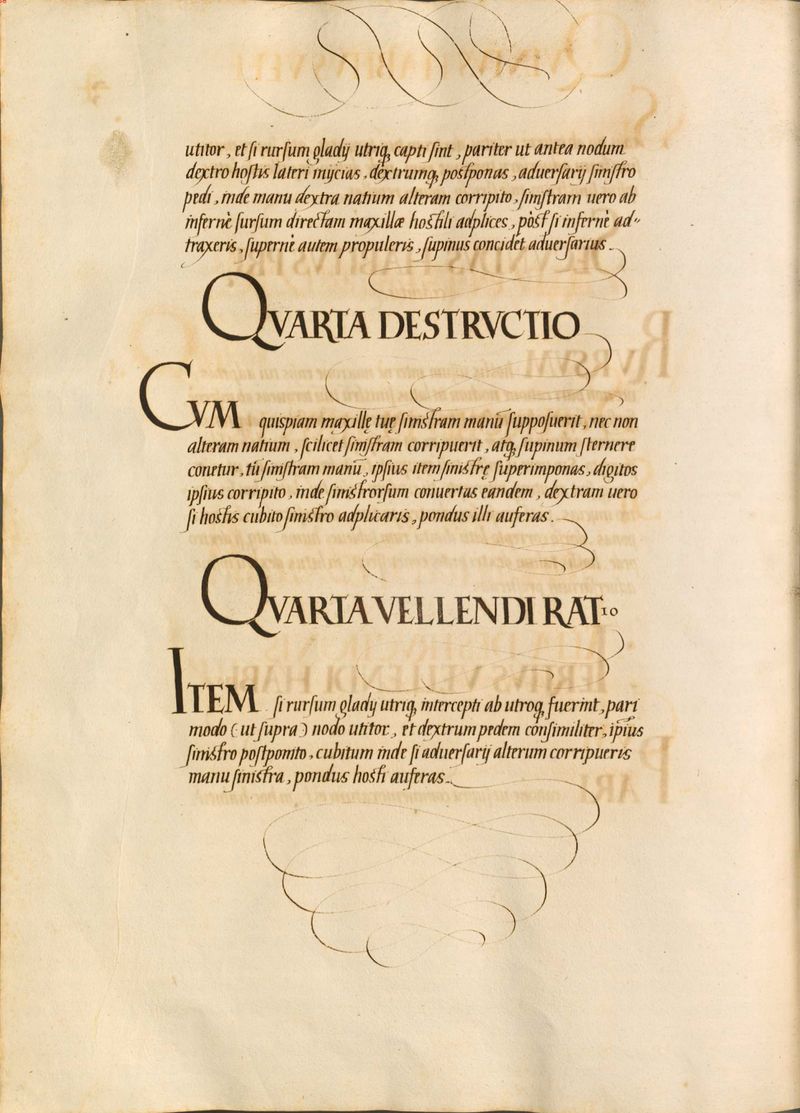 utitor, et si rursum gladij utriq, capti sint, pariter ut antea nodum
dextro hostis lateri inijcias, dextrumq, postponas, aduersarij sinistro
pedi, inde manu dextra natium alteram corripito, sinistram uero ab
infernè sursum directam maxillæ hostili adplices, pòst si infernè ad-
traxeris, supernè autem propuleris, supinus concidet aduersarius.
QVARTA DESTRVCTIO
CVM quispiam maxillę tuę sinistram manū supposuerit, nec non
alteram natium, scilicet sinistram corripuerit, atq, supinum sternere
conetur, tū sinistram manū, ipsius item sinistrę superimponas, digitos
ipsius corripito, inde sinistrorsum conuertas eandem, dextram uero
si hostis cubito sinistro adplicaris, pondus illi auferas.
QVARTA VELLENDI RATIO
ITEM si rursum gladij utriq, intercepti ab utroq, fuerint, pari
modo (ut supra) nodo utitor, et dextrum pedem consimiliter, ipsius
sinistro postponito, cubitum inde si aduersarij alterum corripueris
manu sinistra, pondus hosti auferas.